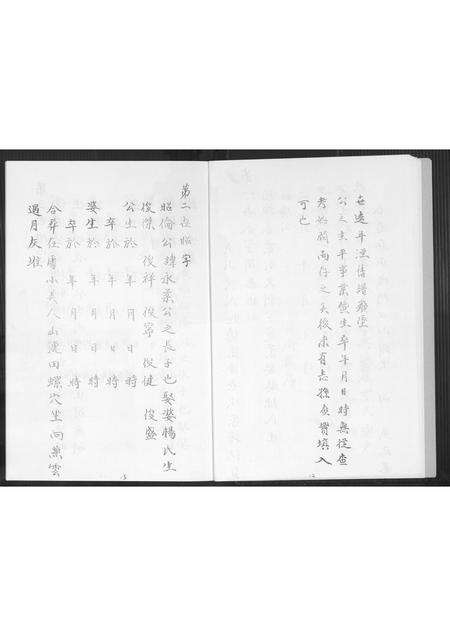 在遠年湮借增癈墜
公之生平事業儀生卒年月日時無從查
考始闕而存之矣後來有志搜查實填入
可也
12
第二世昭字
昭倫公諱永業公之長子也娶婆楊氏生
俊傑 俊祥 俊寧 俊健 俊盛
公生於 年 月 日 時
卒於 年 月 日 時
婆生於 年 月 日 時
卒於 年 月 日 時
合葬在 小 人山 田螺穴坐 向 雲
過月灰堆
13